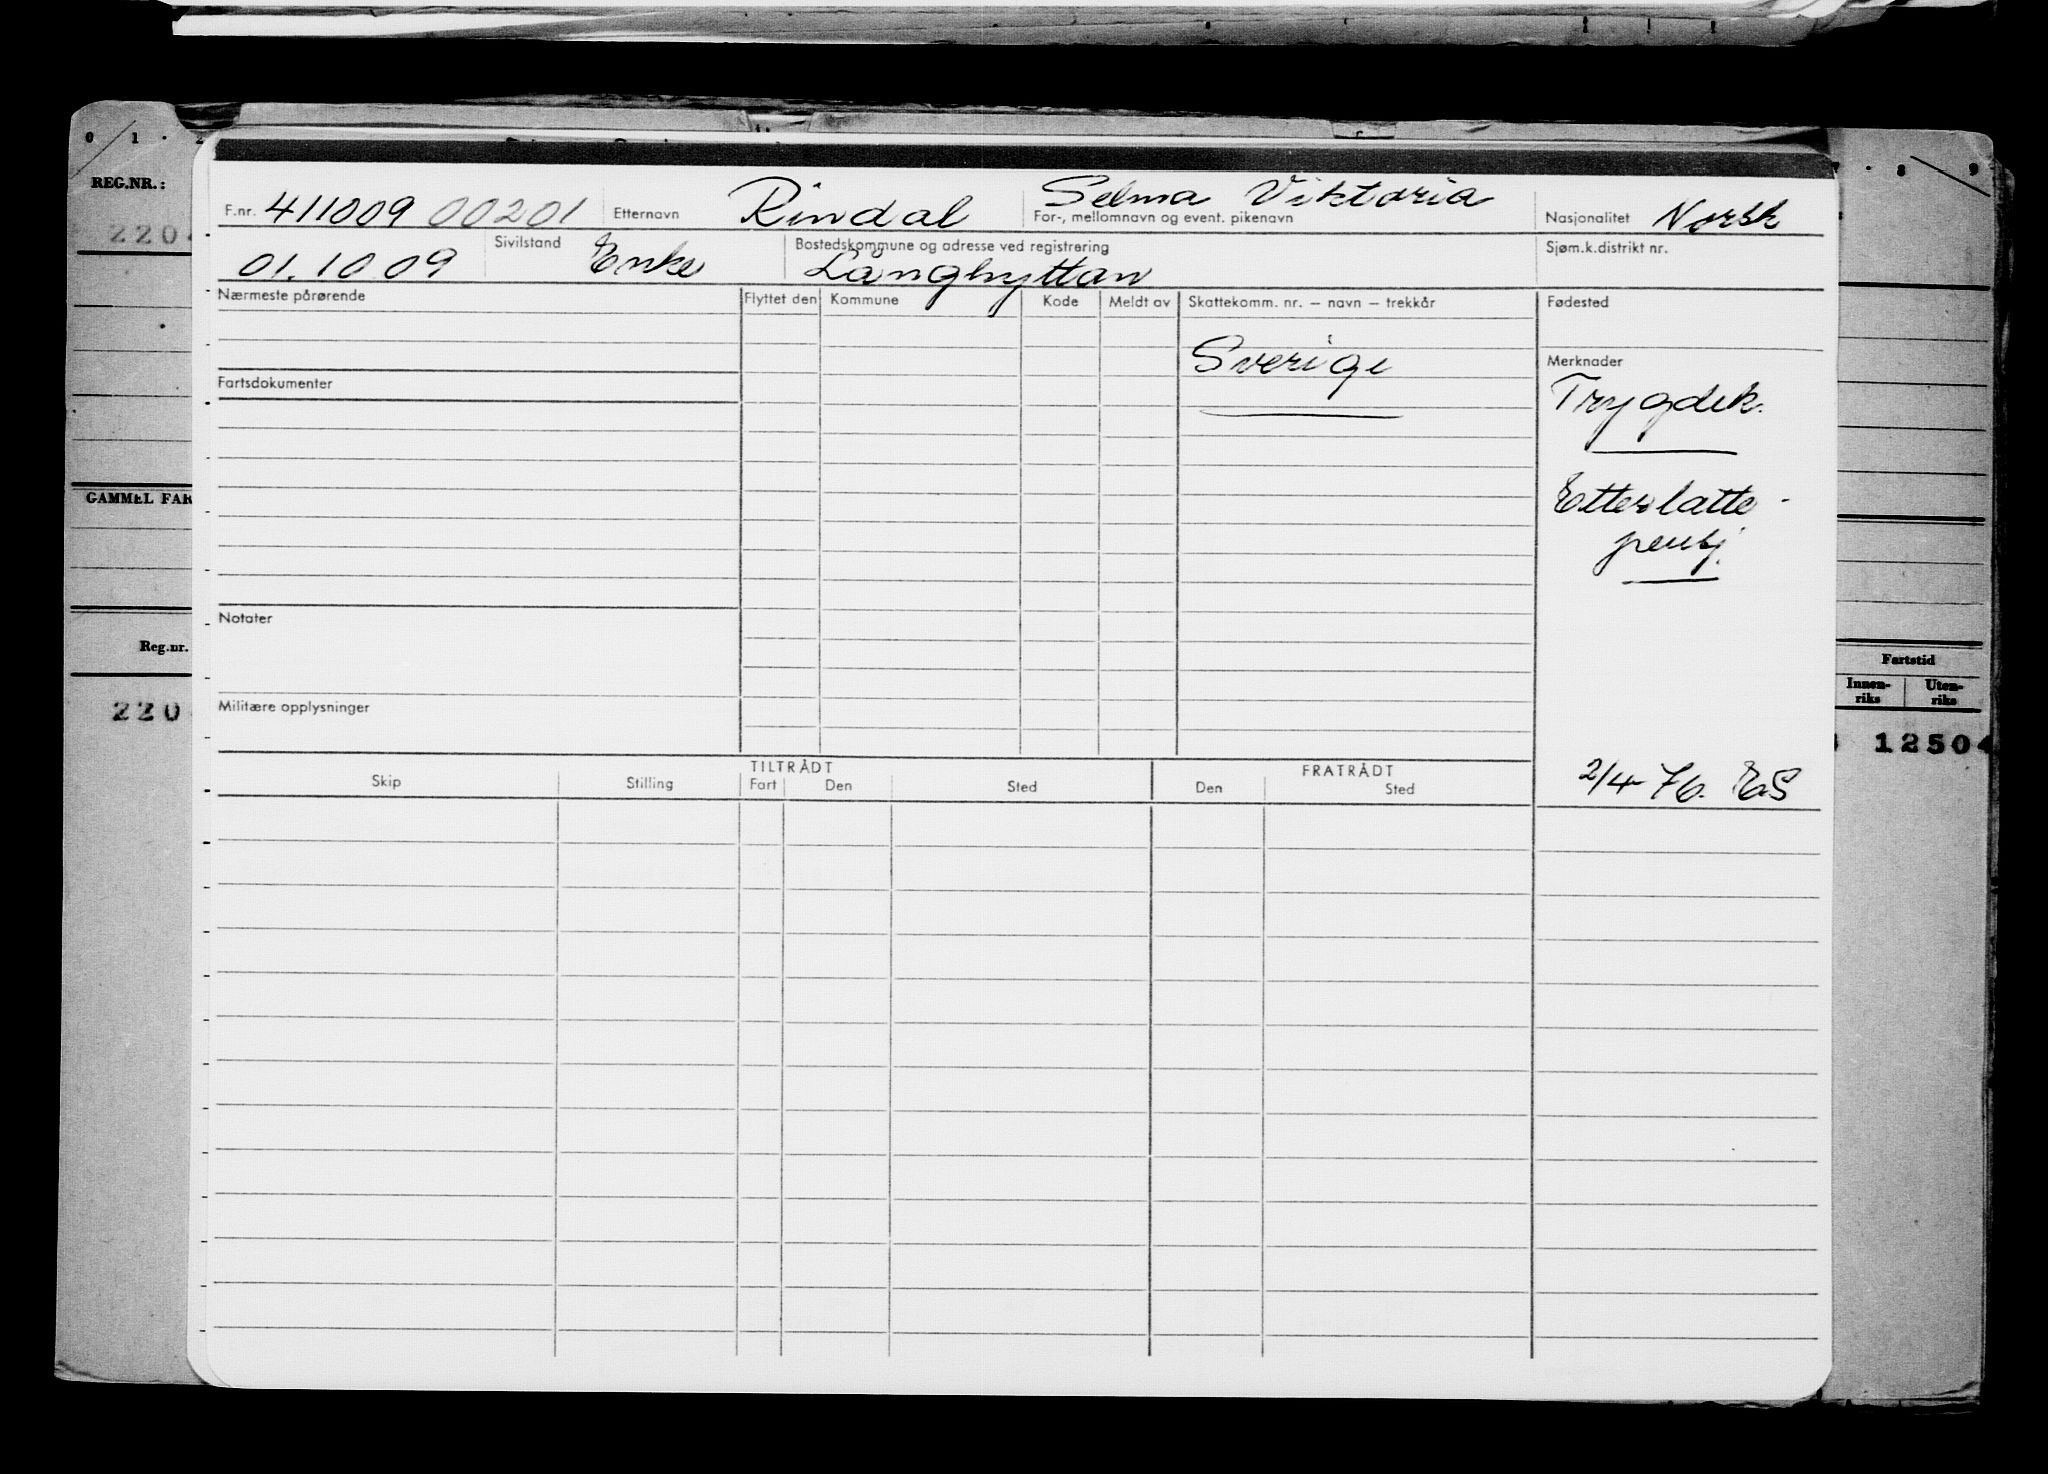 0 1 · 2
7 · 8 9
REG.NR.:
220
F.nr. 411009 00201 Etternavn Rindal Selma Viktoria For-, mellomnavn og event. pikenavn Nasjonalitet Norsk
01.10 09 Sivilstand Enke Bostedskommune og adresse ved registrering Långhyttan Sjøm.k.distrikt nr.
Nærmeste pårørende Flyttet den Kommune Kode Meldt av Skattekomm. nr. – navn – trekkår Fødested
Sverige
Merknader
Fartsdokumenter
Trygdek.
GAMMEL FAR
Etterlatte -
pensj.
Notater
Reg.nr.
Fartstid
Innen-riks Uten-riks
220
Militære opplysninger
12504
TILTRÅDT FRATRÅDT
Skip Stilling Fart Den Sted Den Sted
2/4-76. ES